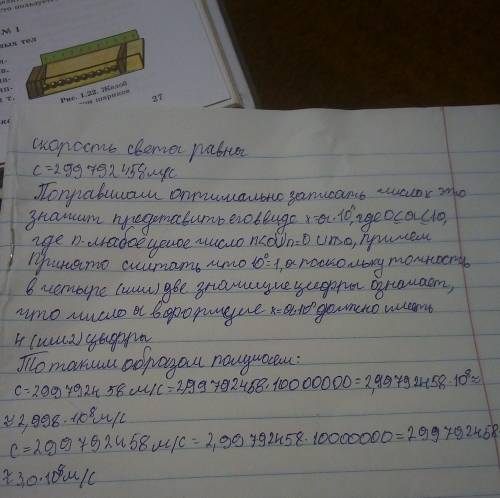 № 1
Рис. 1.22. Желоб
шариков
27
скорость света равны
с=299792458м/с
По правилам оптимально записать число к это
значит представить его в виде х=а·10ⁿ, где 0<а<10,
где n-любое целое число n<0 U n=0 U n>0, Причем
Принято считать что 10⁰=1, а поскольку точность
в четыре (или) две значищие цифры означает,
что число а в формуле х=а·10ⁿ должно иметь
4 (или 2) цыфры
То таким образом получаем:
с=299792458 м/с=2,99792458·100000000=2,99792458·10⁸≈
≈2,998·10⁸м/с
с=299792458м/с=2,99792458·100000000=299792458
≈3,0·10⁸м/с